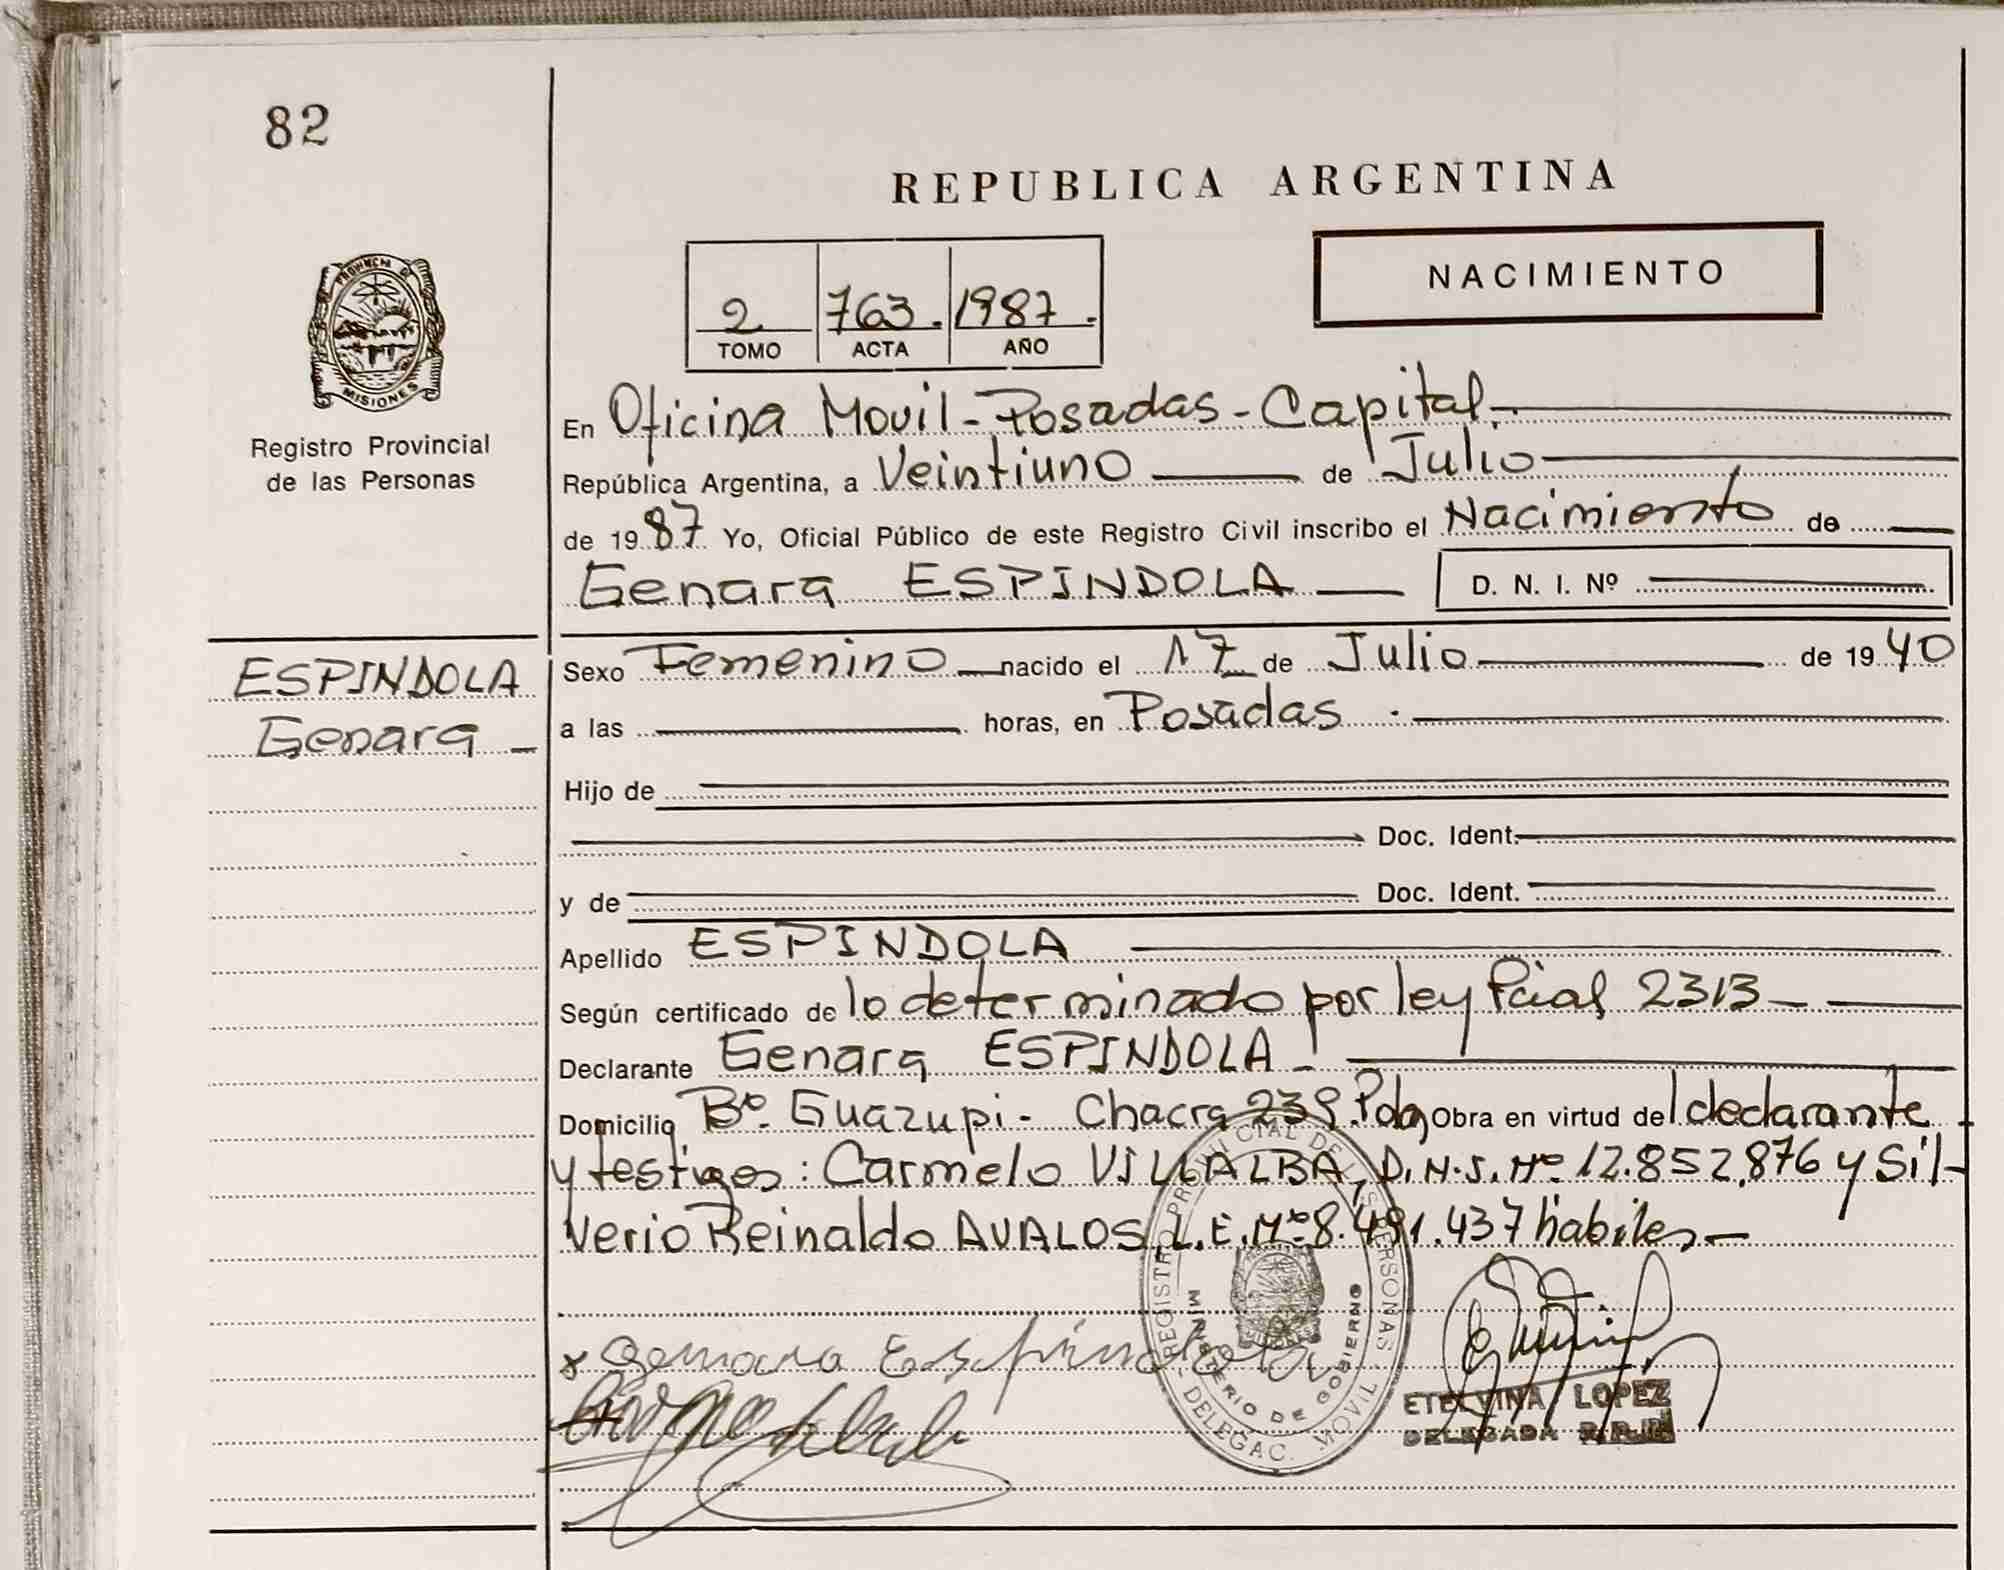 82
REPUBLICA ARGENTINA
NACIMIENTO
2 763. 1987.
TOMO ACTA AÑO
PROVINCIA DE
MISIONES
Registro Provincial
de las Personas
En Oficina Movil - Posadas - Capital.-
República Argentina, a Veintiuno de Julio
de 1987 Yo, Oficial Público de este Registro Civil inscribo el Nacimiento de
Genara ESPINDOLA D. N. I. Nº
ESPINDOLA
Genara -
Sexo Femenino nacido el 17 de Julio de 1940
a las horas, en Posadas.
Hijo de
Doc. Ident.
y de Doc. Ident.
Apellido ESPINDOLA
Según certificado de lo determinado por ley Pcial 2313 -
Declarante Genara ESPINDOLA -
Domicilio Bº. Guazupi - Chacra 239. Pdas Obra en virtud del declarante
y testigos: Carmelo VILLALBA, D.N.I. Nº 12.852.876 y Sil-
verio Reinaldo AVALOS, L.E. Nº 8.491.437 habiles -
x Genara Espindola
REGISTRO PROVINCIAL DE LAS PERSONAS - DELEGAC. MOVIL -
MINISTERIO DE GOBIERNO
ETELVINA LOPEZ
DELEGADA